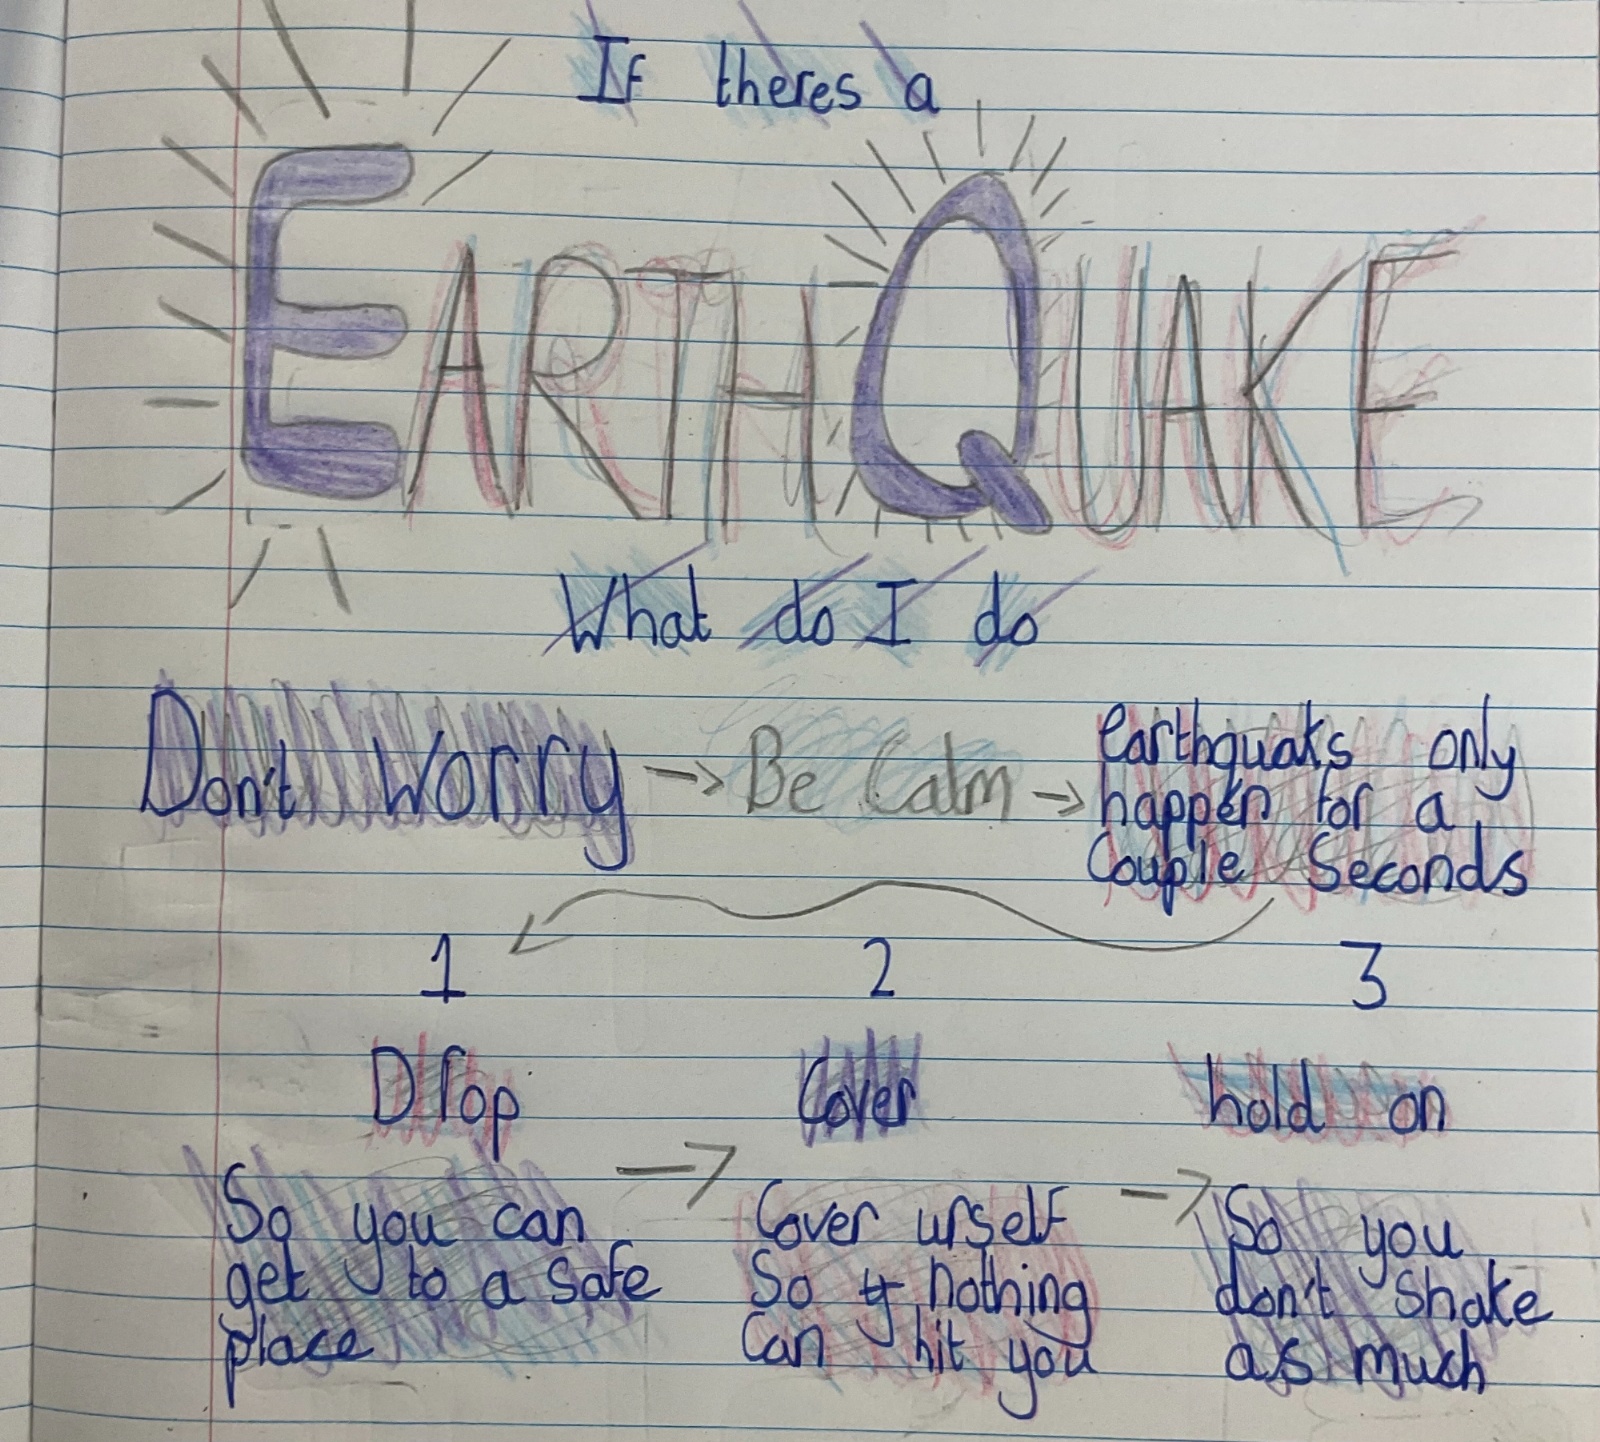 If theres a
EARTHQUAKE
What do I do
Don't worry → Be Calm → earthquaks only
happen for a
Couple Seconds
1 2 3
Drop Cover hold on
So you can → Cover urself → So you
get to a safe So nothing don't shake
place Can hit you as much